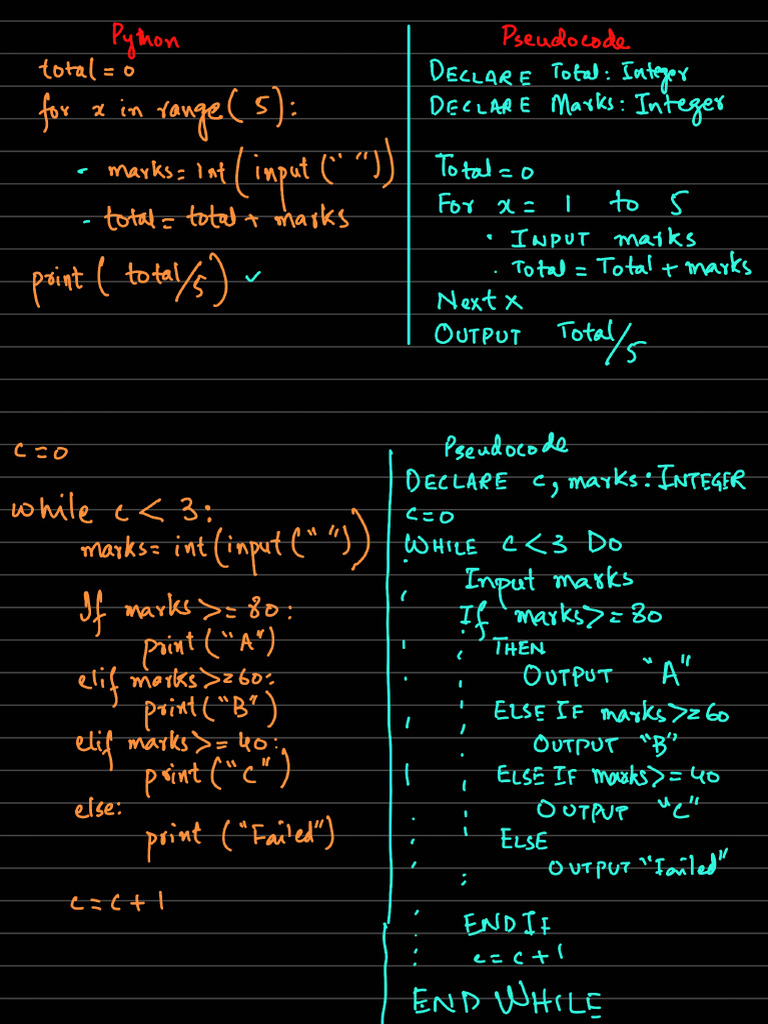 Python
total = 0
for x in range( 5):
- marks = int ( input (" "))
- total = total + marks
print ( total/5) ✓
Pseudocode
DECLARE Total : Integer
DECLARE Marks : Integer
Total = 0
For x = 1 to 5
• INPUT marks
• Total = Total + marks
Next x
OUTPUT Total/5
c = 0
while c < 3:
marks = int (input (" "))
If marks >= 80 :
print ("A")
elif marks >= 60:
print ("B")
elif marks >= 40:
print ("C")
else:
print ("Failed")
c = c + 1
Pseudocode
DECLARE c, marks : INTEGER
c = 0
WHILE c < 3 DO
Input marks
If marks >= 80
THEN
OUTPUT "A"
ELSE IF marks >= 60
OUTPUT "B"
ELSE IF marks >= 40
OUTPUT "C"
ELSE
OUTPUT "Failed"
END IF
c = c + 1
END WHILE